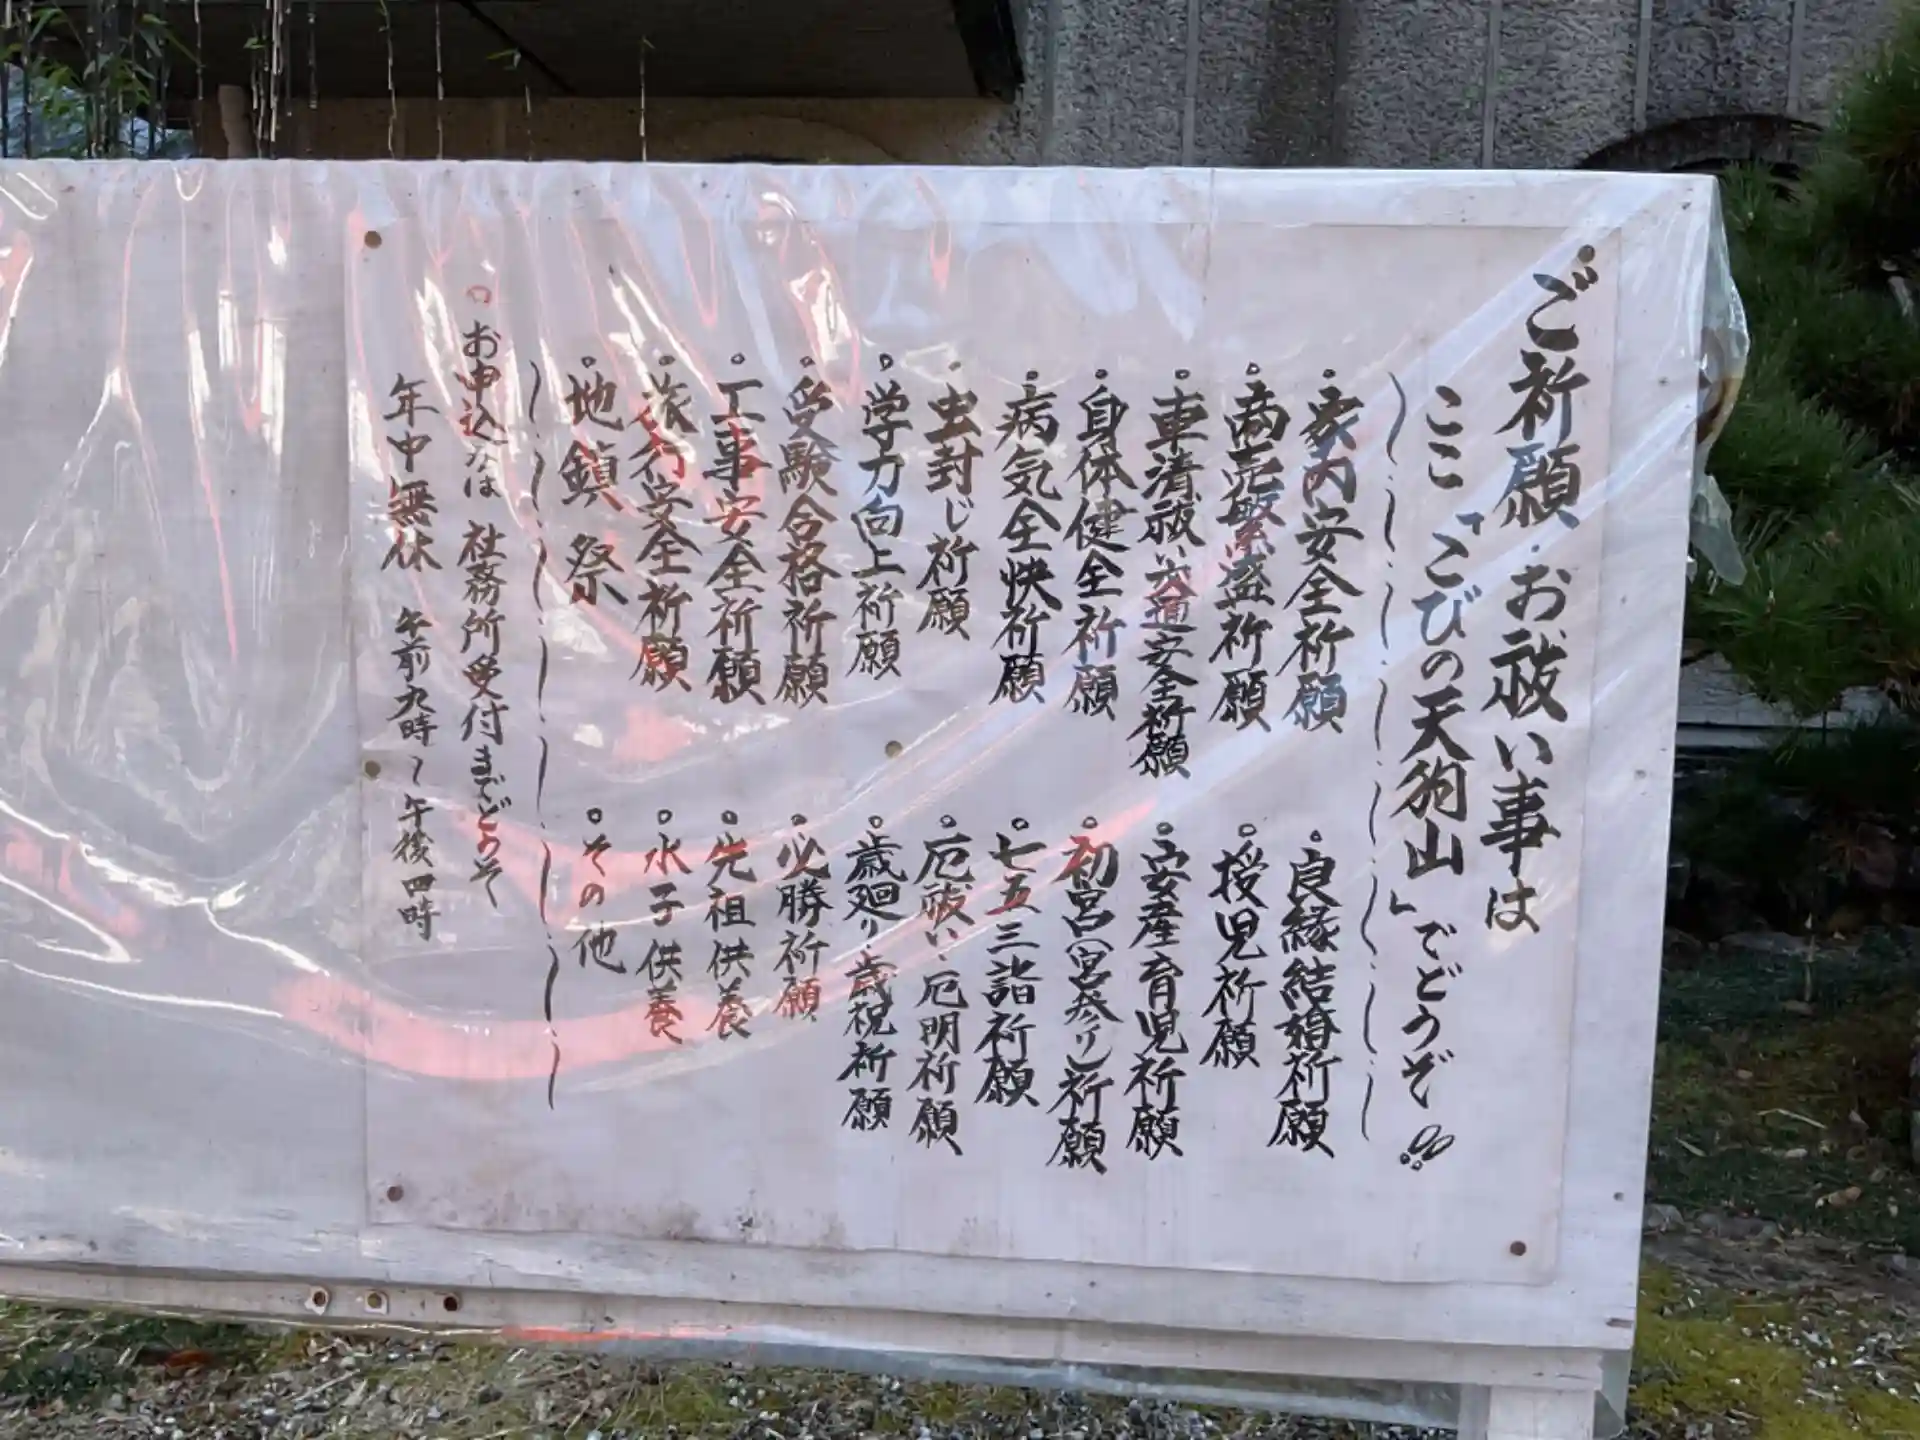 ご祈願・お祓い事は
ここ「こびの天狗山」でどうぞ!!
○家内安全祈願
○商売繁盛祈願
○車清祓い・交通安全祈願
○身体健全祈願
○病気全快祈願
○虫封じ祈願
○学力向上祈願
○受験合格祈願
○工事安全祈願
○旅行安全祈願
○地鎮祭
○良縁結婚祈願
○授児祈願
○安産育児祈願
○初宮(宮参り)祈願
○七五三詣祈願
○厄祓い・厄明祈願
○歳廻り・歳祝祈願
○必勝祈願
○先祖供養
○水子供養
○その他
○お申込みは 社務所受付までどうぞ
年中無休 午前九時~午後四時